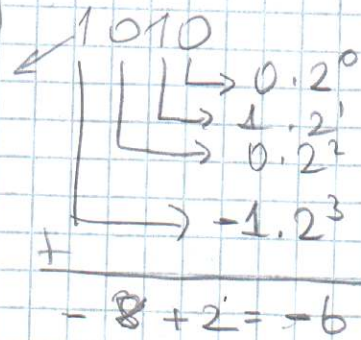 1010
0·2⁰
1·2¹
0·2²
-1·2³
+
-8+2=-6